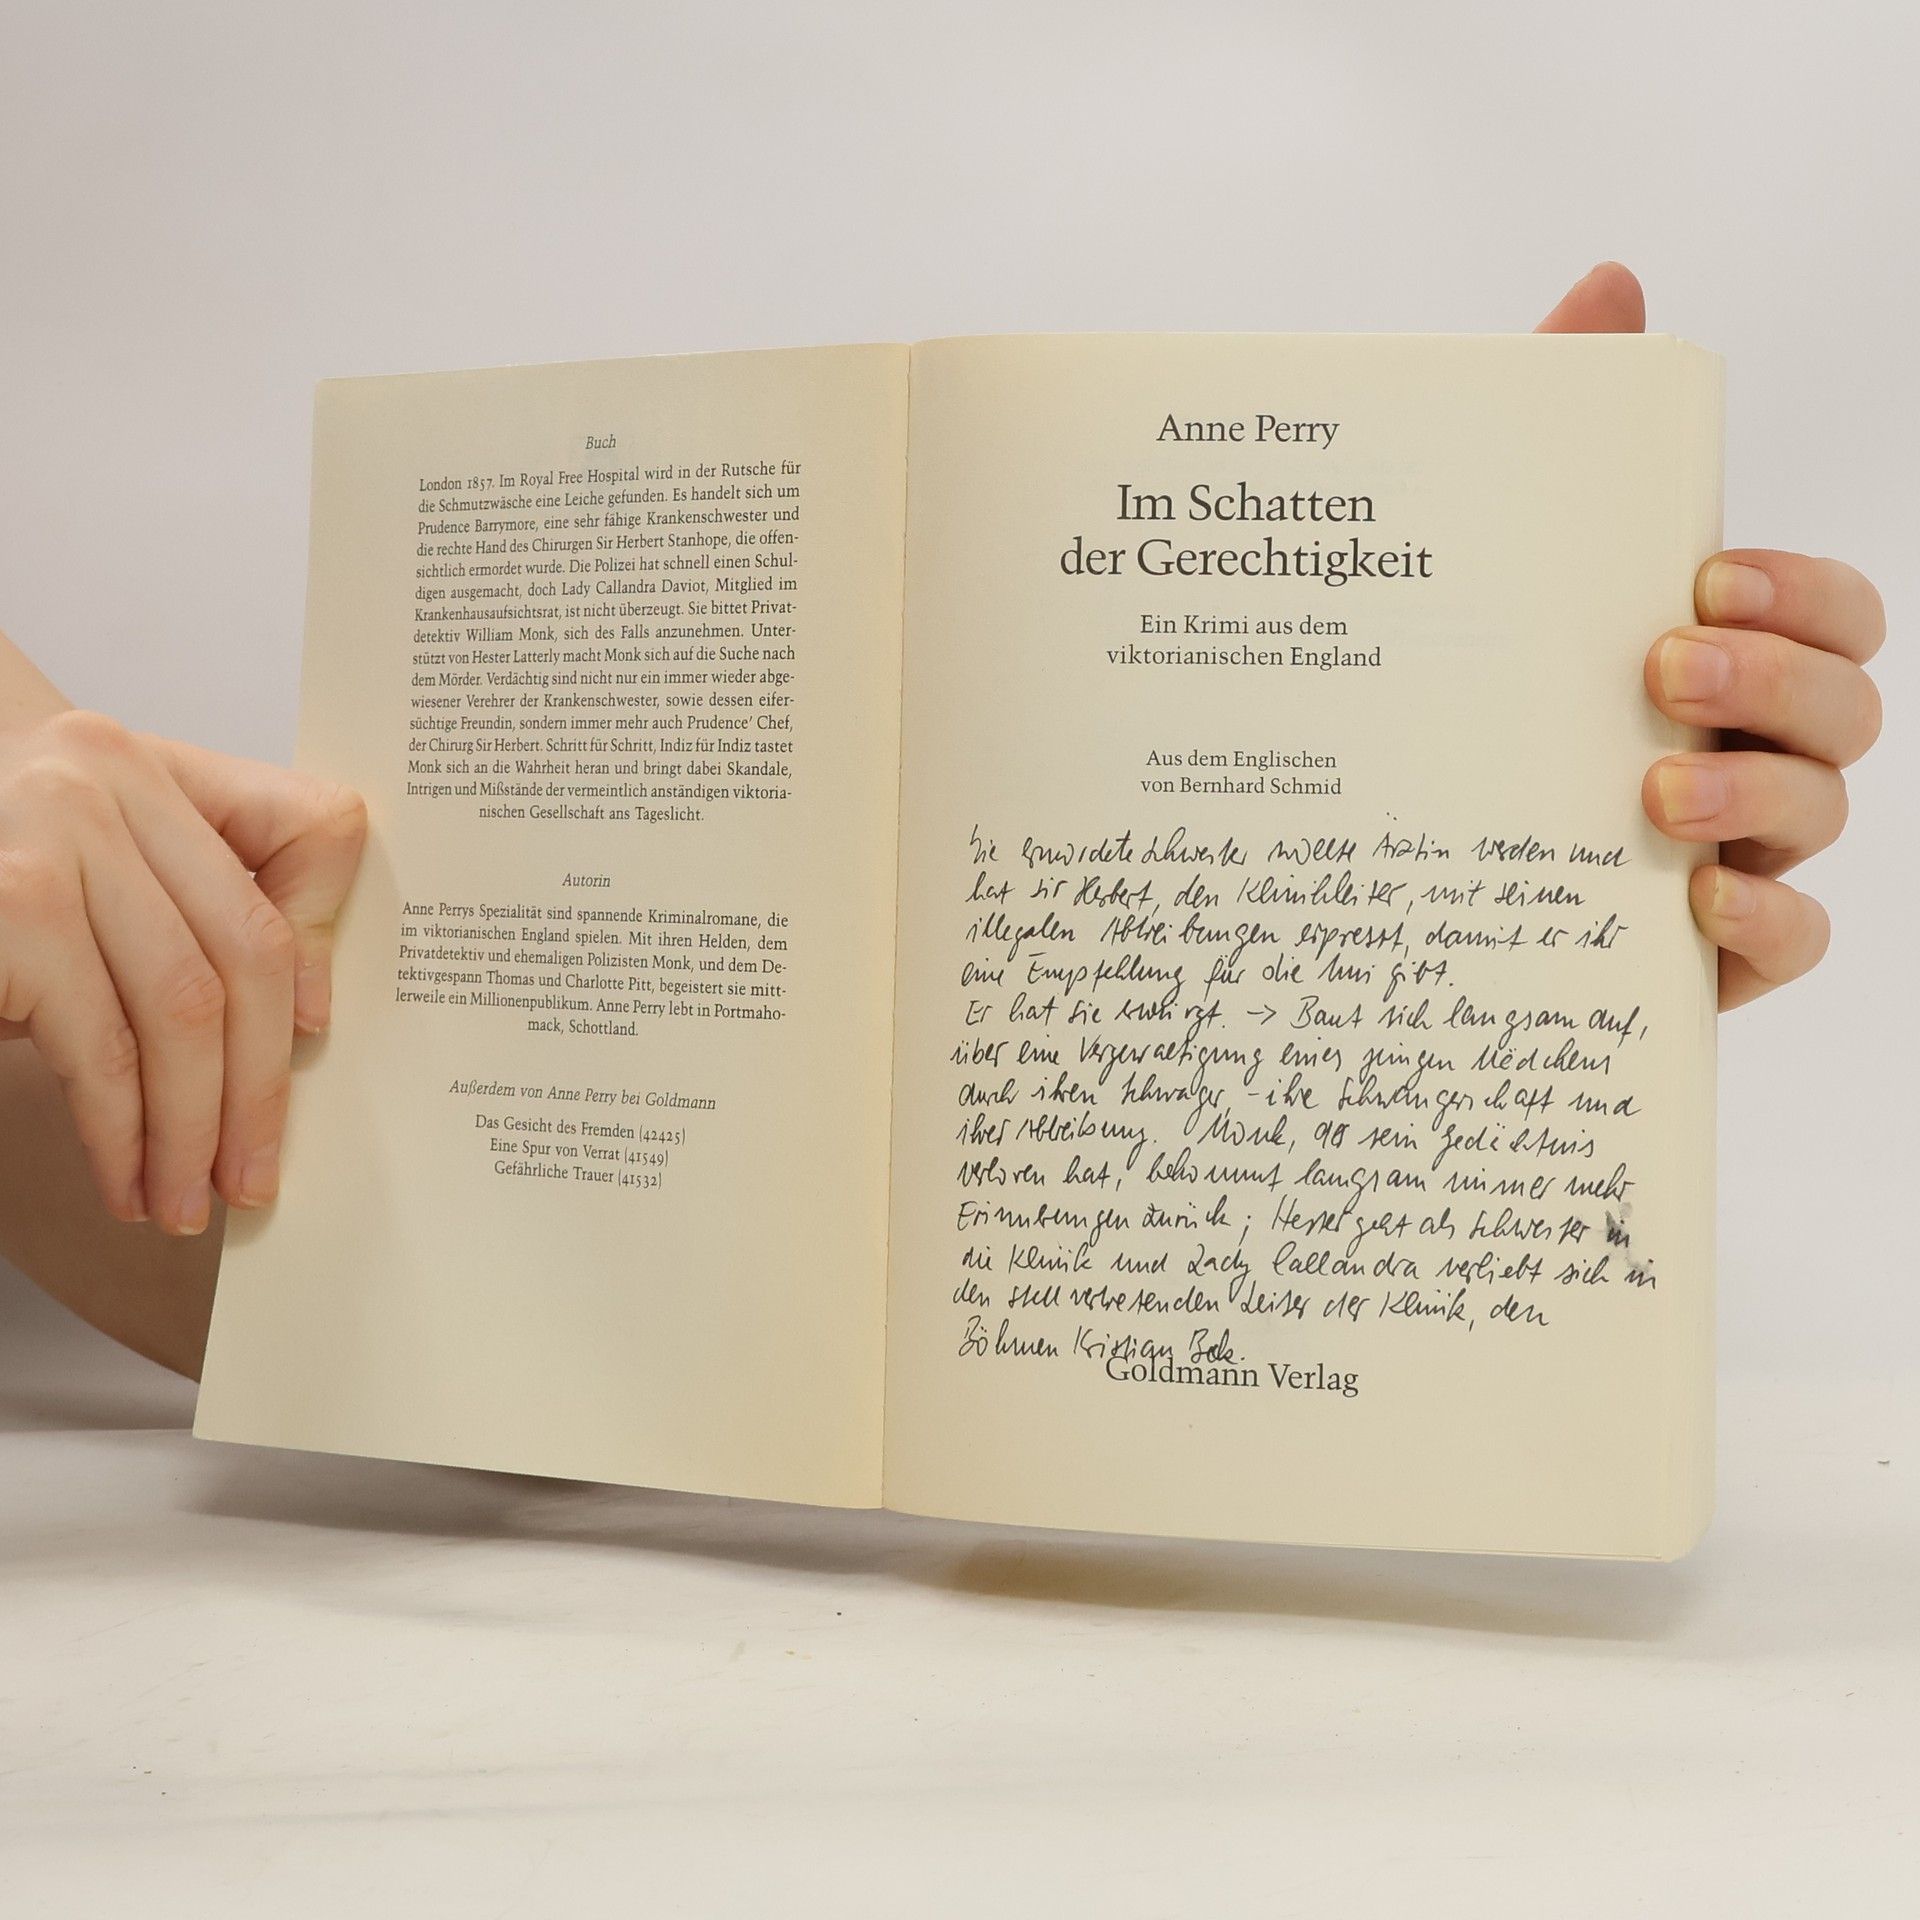 Buch
London 1857. Im Royal Free Hospital wird in der Rutsche für
die Schmutzwäsche eine Leiche gefunden. Es handelt sich um
Prudence Barrymore, eine sehr fähige Krankenschwester und
die rechte Hand des Chirurgen Sir Herbert Stanhope, die offen-
sichtlich ermordet wurde. Die Polizei hat schnell einen Schul-
digen ausgemacht, doch Lady Callandra Daviot, Mitglied im
Krankenhausaufsichtsrat, ist nicht überzeugt. Sie bittet Privat-
detektiv William Monk, sich des Falls anzunehmen. Unter-
stützt von Hester Latterly macht Monk sich auf die Suche nach
dem Mörder. Verdächtig sind nicht nur ein immer wieder abge-
wiesener Verehrer der Krankenschwester, sowie dessen eifer-
süchtige Freundin, sondern immer mehr auch Prudence' Chef,
der Chirurg Sir Herbert. Schritt für Schritt, Indiz für Indiz tastet
Monk sich an die Wahrheit heran und bringt dabei Skandale,
Intrigen und Mißstände der vermeintlich anständigen viktoria-
nischen Gesellschaft ans Tageslicht.
Autorin
Anne Perrys Spezialität sind spannende Kriminalromane, die
im viktorianischen England spielen. Mit ihren Helden, dem
Privatdetektiv und ehemaligen Polizisten Monk, und dem De-
tektivgespann Thomas und Charlotte Pitt, begeistert sie mitt-
lerweile ein Millionenpublikum. Anne Perry lebt in Portmaho-
mack, Schottland.
Außerdem von Anne Perry bei Goldmann
Das Gesicht des Fremden (42425)
Eine Spur von Verrat (41549)
Gefährliche Trauer (41532)
Anne Perry
Im Schatten
der Gerechtigkeit
Ein Krimi aus dem
viktorianischen England
Aus dem Englischen
von Bernhard Schmid
Die ermordete Schwester wollte Ärztin werden und
hat Sir Herbert, den Klinikleiter, mit seinen
illegalen Abtreibungen erpresst, damit er ihr
eine Empfehlung für die Uni gibt.
Er hat sie erwürgt. -> Baut sich langsam auf,
über eine Vergewaltigung eines jungen Mädchens
durch ihren Schwager, - ihre Schwangerschaft und
ihrer Abtreibung. Monk, der sein Gedächtnis
verloren hat, bekommt langsam immer mehr
Erinnerungen zurück; Hester geht als Schwester in
die Klinik und Lady Callandra verliebt sich in
den stellvertretenden Leiter der Klinik, den
Böhmen Kristian Bek.
Goldmann Verlag